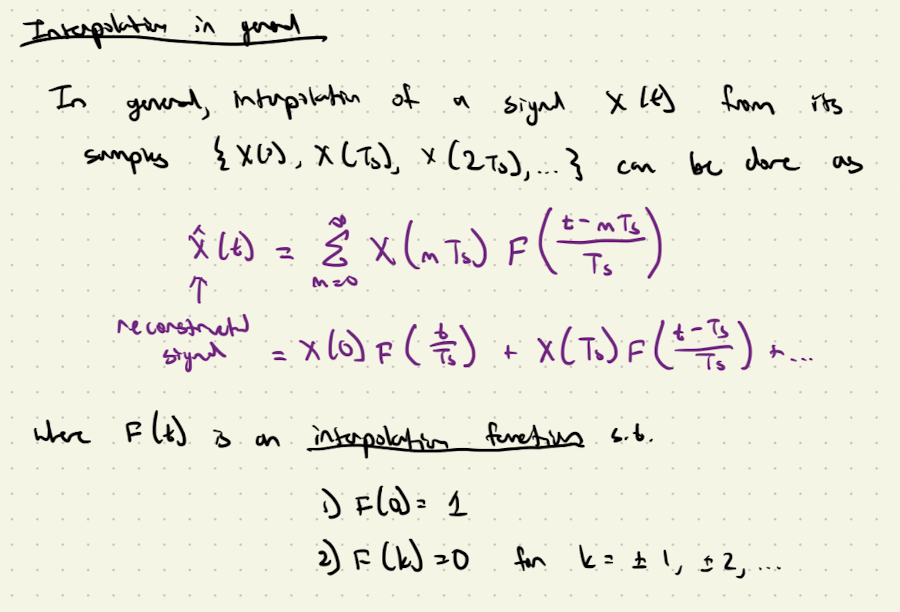 Interpolation in general
In general, interpolation of a signal X(t) from its
samples {X(0), X(Ts), X(2Ts),...} can be done as
X̂(t) = ∞ Σ m=0 X(mTs) F((t-mTs)/Ts)
↑
reconstructed
signal
= X(0) F(t/Ts) + X(Ts) F((t-Ts)/Ts) + ...
where F(t) is an interpolation function s.t.
1) F(0) = 1
2) F(k) = 0 for k = ±1, ±2, ...